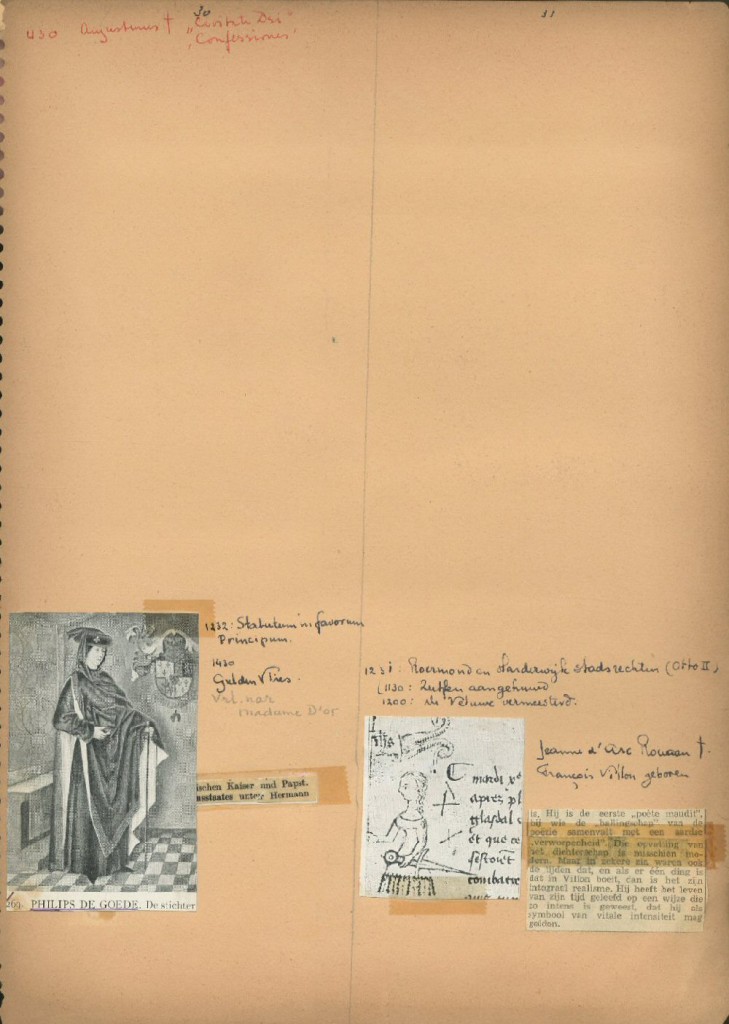 30
430 Augustinus † "Civitate Dei"
"Confessiones"
1232: Statutum in favorum
Principum.
1430
Gulden Vlies.
Vrl. nar
madame D'or
ischen Kaiser und Papst.
nsstaates unter Hermann
269. PHILIPS DE GOEDE. De stichter
31
1231: Roermond en Harderwijk stadsrechten (Otto II)
(1130: Zutfen aangehuwd
1200: de Veluwe vermeesterd.
mardi
apres pl
glasdal
et que ce
combatre
Jeanne d'Arc Rouaan †.
François Villon geboren
is. Hij is de eerste „poète maudit",
bij wie de „ballingschap" van de
poëzie samenvalt met een aardse
„verworpenheid". Die opvatting van
het dichterschap is misschien mo-
dern. Maar in zekere zin waren ook
de tijden dat, en als er één ding is
dat in Villon boeit, dan is het zijn
integraal realisme. Hij heeft het leven
van zijn tijd geleefd op een wijze die
zo intens is geweest, dat hij als
symbool van vitale intensiteit mag
gelden.